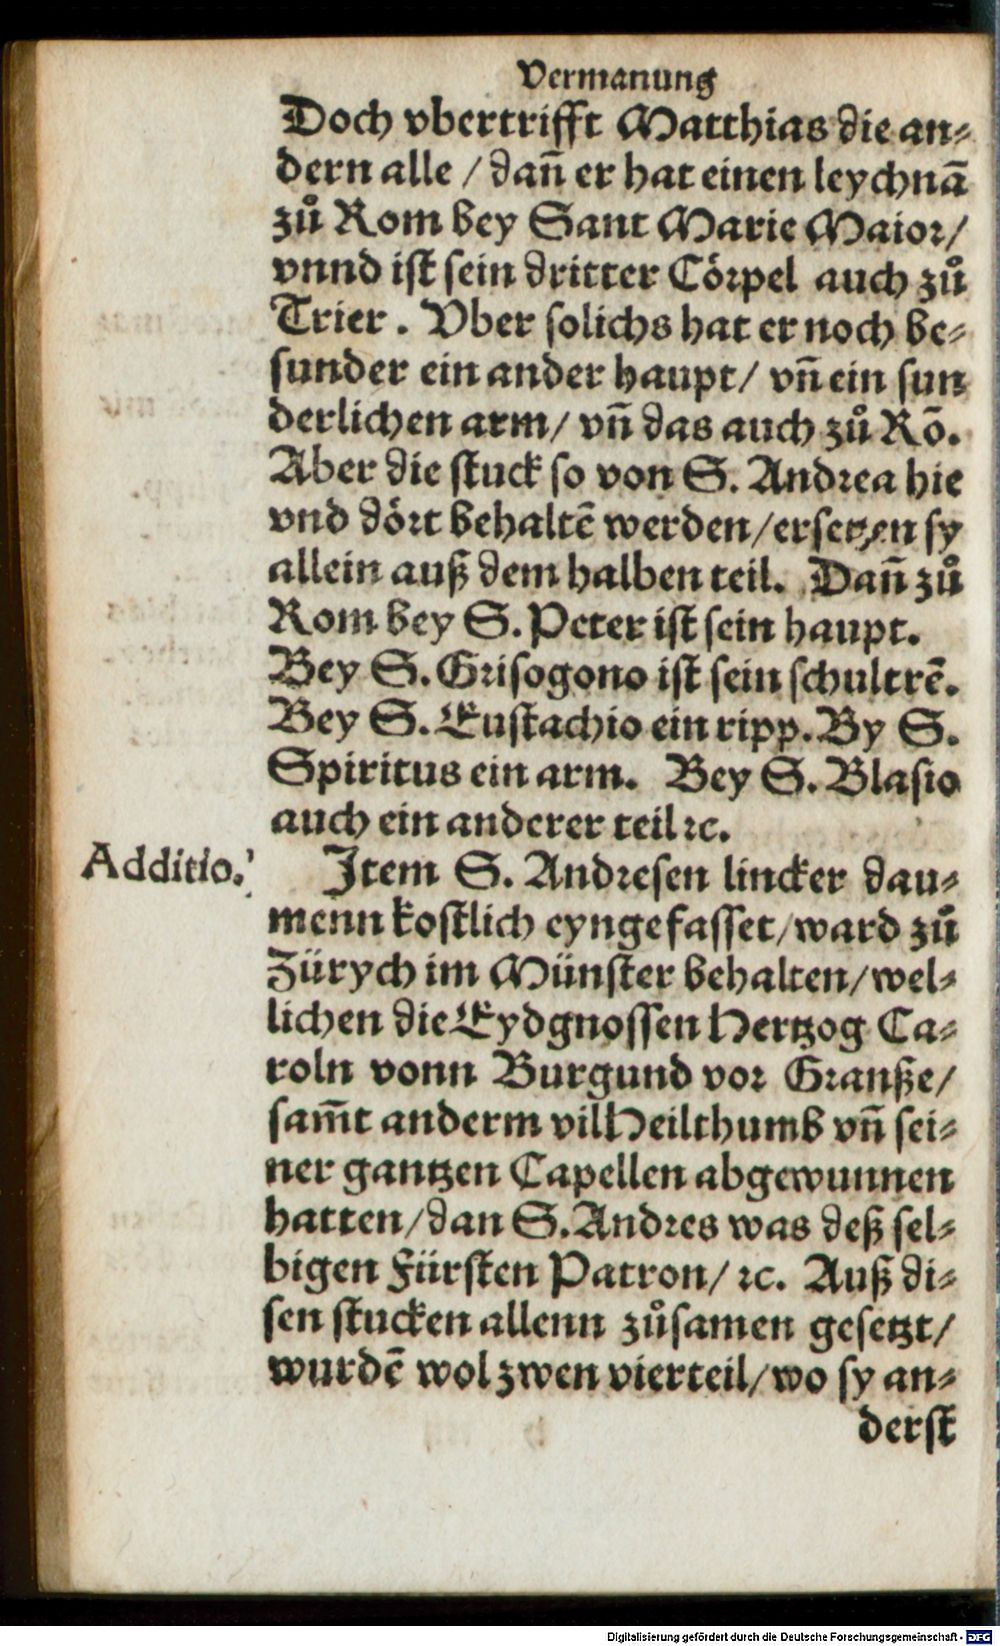 Vermanung
Doch vbertrifft Matthias die an⸗
dern alle / dañ er hat einen leychnã
zů Rom bey Sant Marie Maior/
vnnd ist sein dritter Cörpel auch zů
Trier. Vber solichs hat er noch be⸗
sunder ein ander haupt/ vñ ein sun
derlichen arm/ vñ das auch zů Rõ.
Aber die stuck so von S. Andrea hie
vnd dört behaltẽ werden/ersetzen sy
allein auß dem halben teil. Dañ zů
Rom bey S. Peter ist sein haupt.
Bey S. Grisogono ist sein schultrẽ.
Bey S. Eustachio ein ripp. By S.
Spiritus ein arm. Bey S. Blasio
auch ein anderer teil ⁊c.
Additio.
Item S. Andresen lincker dau⸗
menn kostlich eyngefasset/ward zů
Zürych im Münster behalten/wel⸗
lichen die Eydgnossen Hertzog Ca⸗
roln vonn Burgund vor Granße/
sam̃t anderm vil Heilthumb vñ sei⸗
ner gantzen Capellen abgewunnen
hatten/dan S. Andres was deß sel⸗
bigen Fürsten Patron/ ⁊c. Auß di⸗
sen stucken allenn zůsamen gesetzt/
wurdẽ wol zwen vierteil/wo sy an⸗
derst
Digitalisierung gefördert durch die Deutsche Forschungsgemeinschaft - DFG